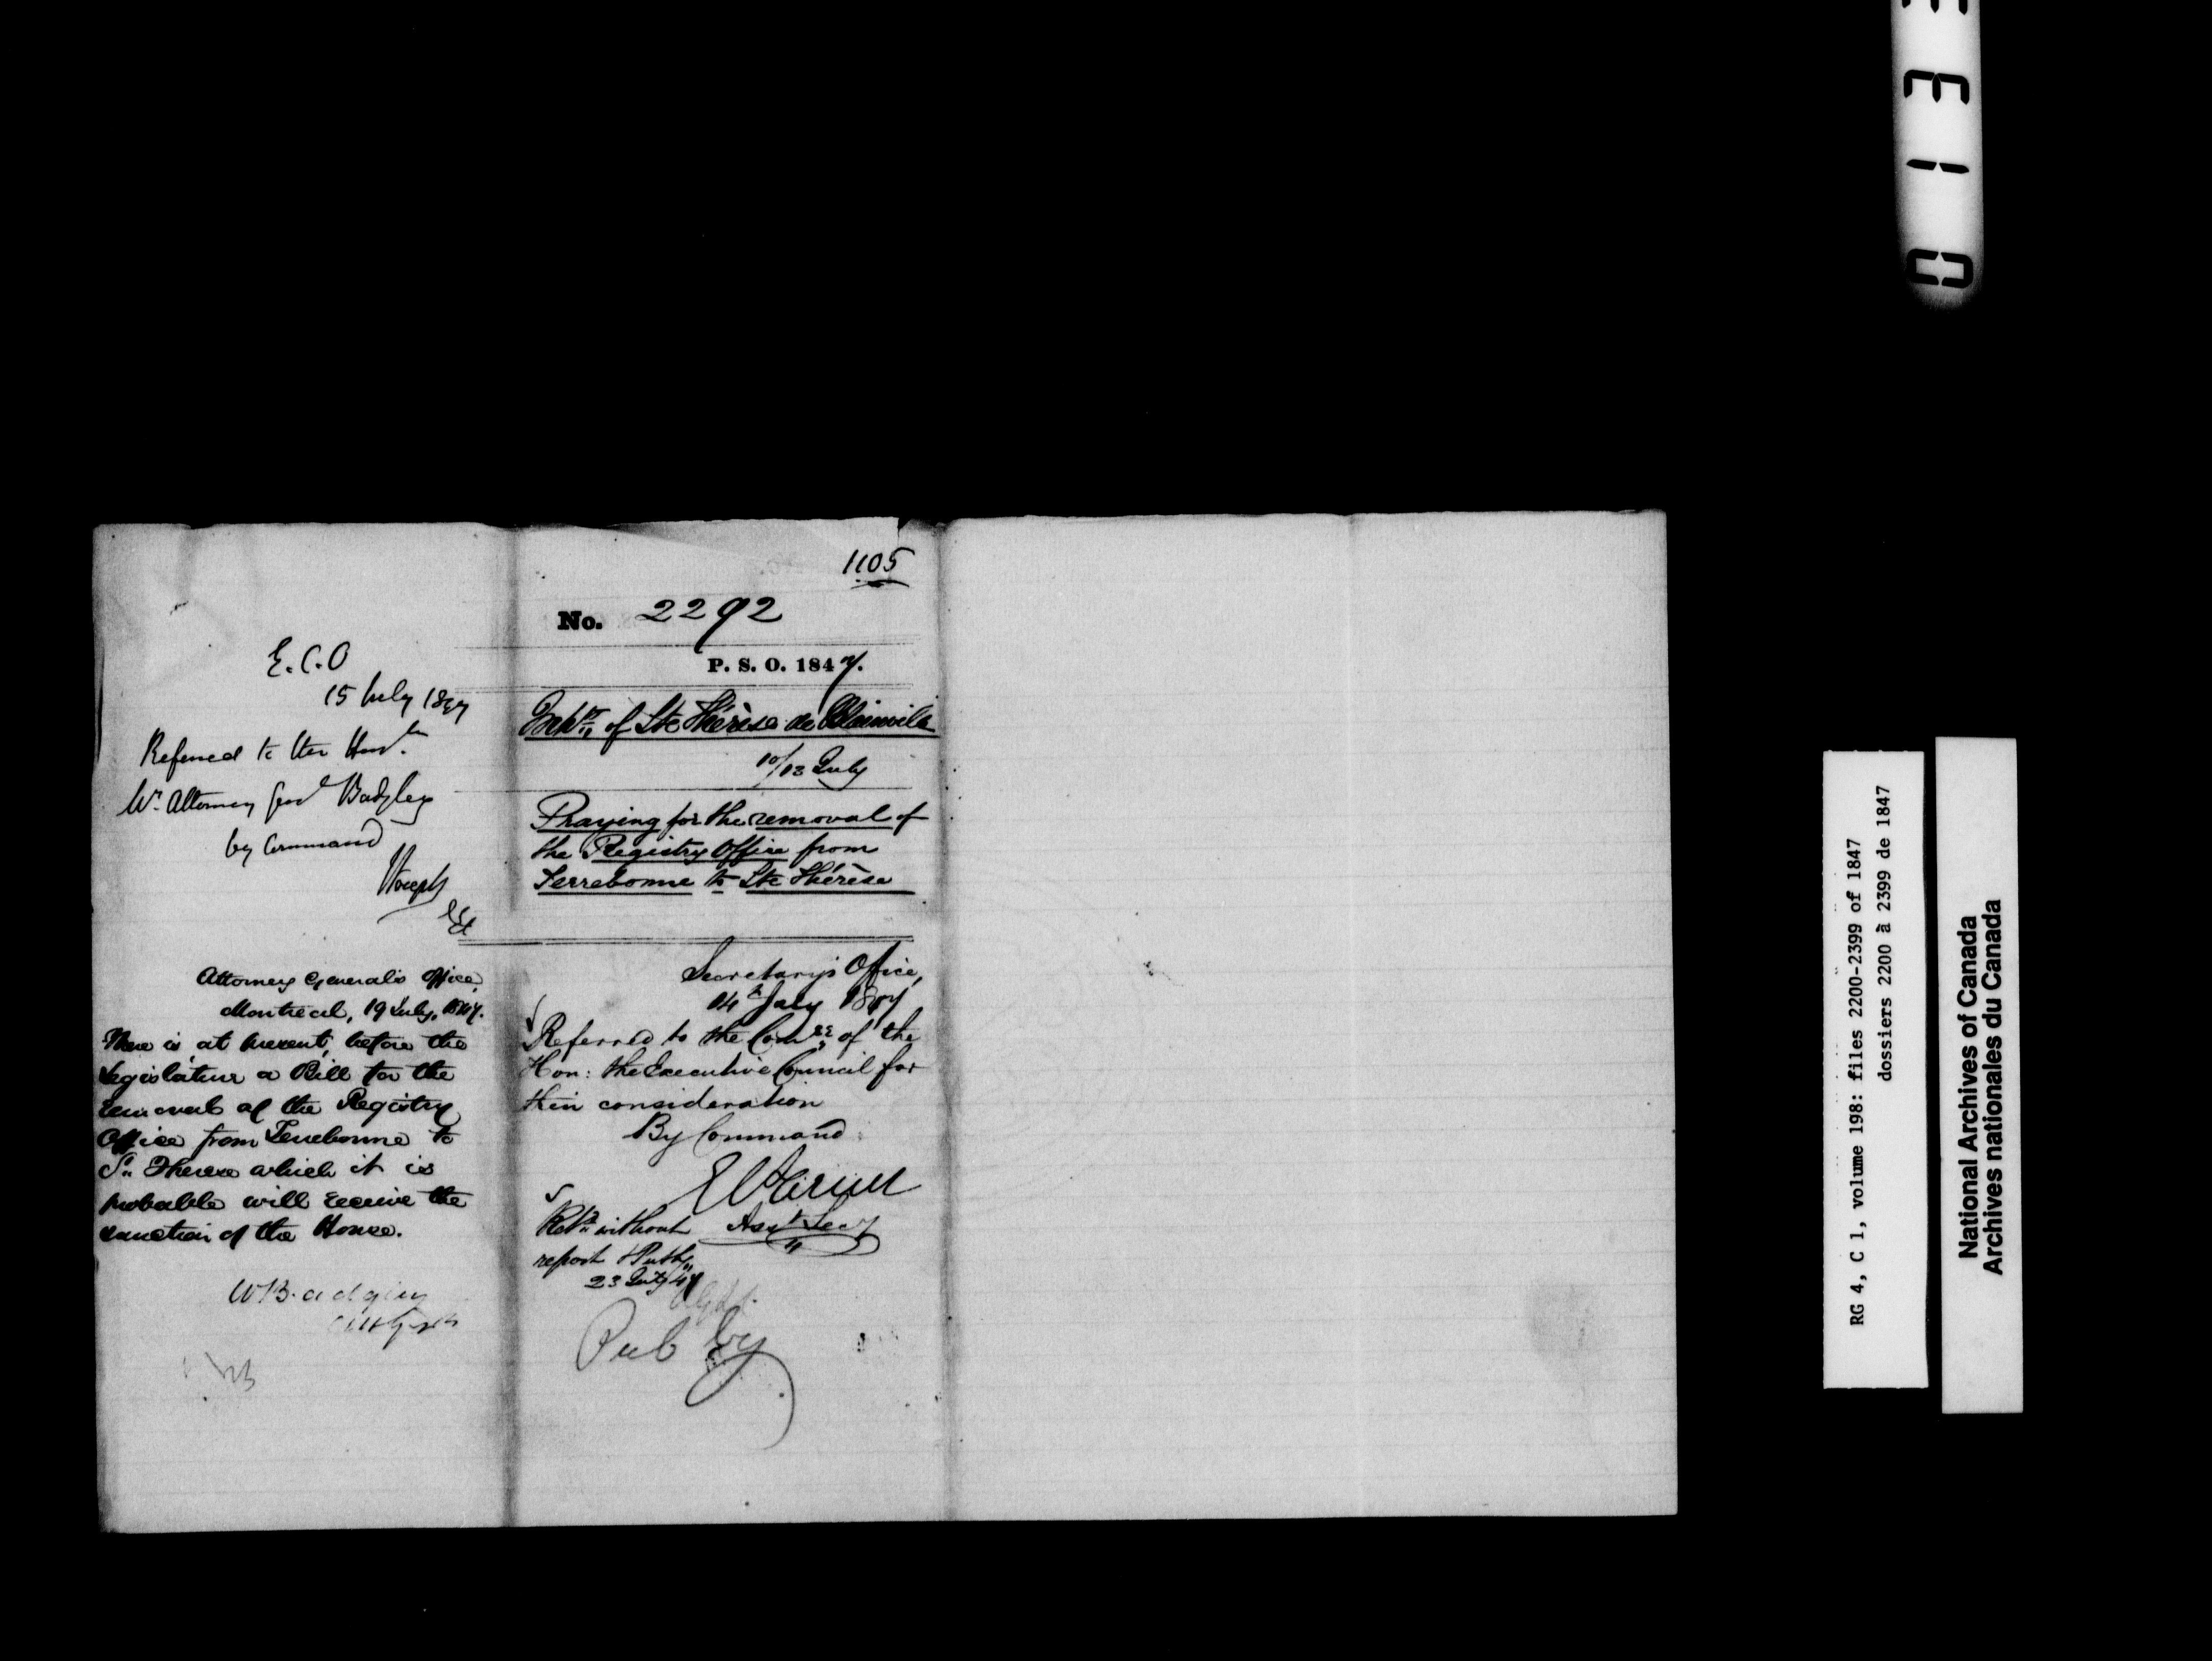 E.C.O
15 July 1847
Referred to the Hon.ble
Mr. Attorney Genl Badgley
by Command
Attorney General's Office,
Montreal, 19 July, 1847.
There is at present, before the
Legislature a Bill for the
removal of the Registry
Office from Terrebonne to
St. Therese which it is
probable will receive the
sanction of the House.
W Badgley
Att Genl
1105
No. 2292
P. S. O. 1847.
Inhts of Ste Thérèse de Blainville
10/13 July
Praying for the removal of
the Registry Office from
Terrebonne to Ste Thérèse
Secretary's Office,
14th July 1847
Referred to the Comee of the
Hon: the Executive Council for
their consideration
By Command
E Parent
Asst Secy
Retd without
report
23 July 47
Put by
0 1 3
RG 4, C 1, volume 198: files 2200-2399 of 1847
dossiers 2200 à 2399 de 1847
National Archives of Canada
Archives nationales du Canada